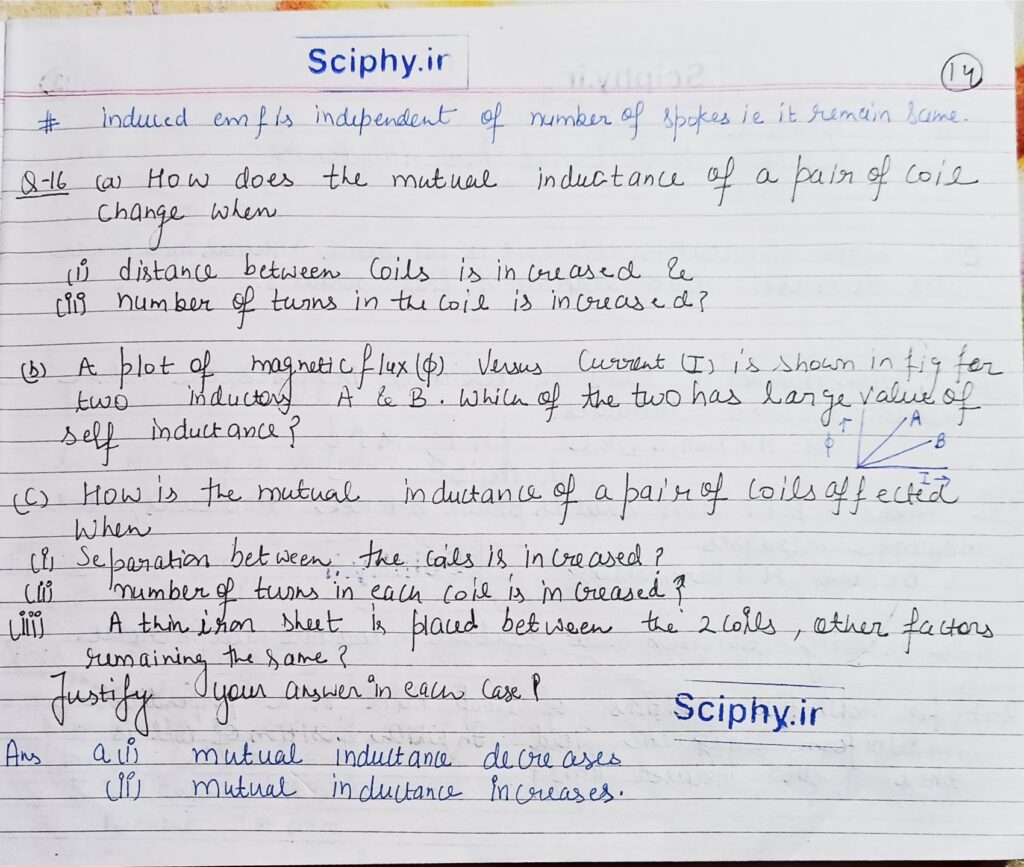 Sciphy.in
14
# induced emf is independent of number of spokes ie it remain same.
Q-16 (a) How does the mutual inductance of a pair of coil
change when
(i) distance between coils is increased &
(ii) number of turns in the coil is increased?
(b) A plot of magnetic flux (ϕ) versus Current (I) is shown in fig for
two inductors A & B. Which of the two has large value of
self inductance?
ϕ ↑ A
B
I →
(C) How is the mutual inductance of a pair of coils affected
when
(i) Separation between the coils is increased?
(ii) number of turns in each coil is increased?
(iii) A thin iron sheet is placed between the 2 coils, other factors
remaining the same?
Justify your answer in each case?
Sciphy.in
Ans a(i) mutual inductance decreases
(ii) mutual inductance increases.